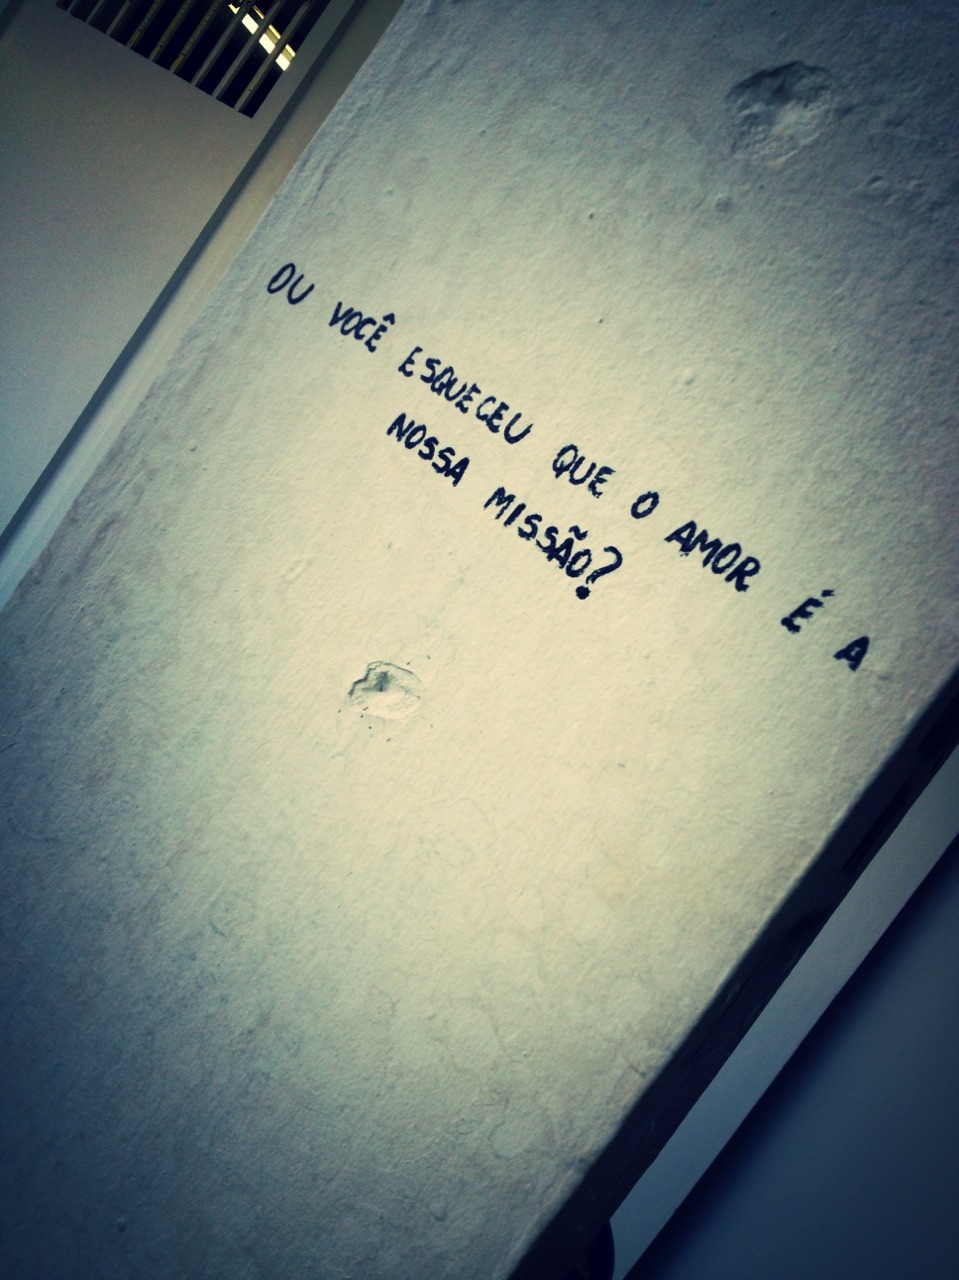 OU VOCÊ ESQUECEU QUE O AMOR É A
NOSSA MISSÃO?